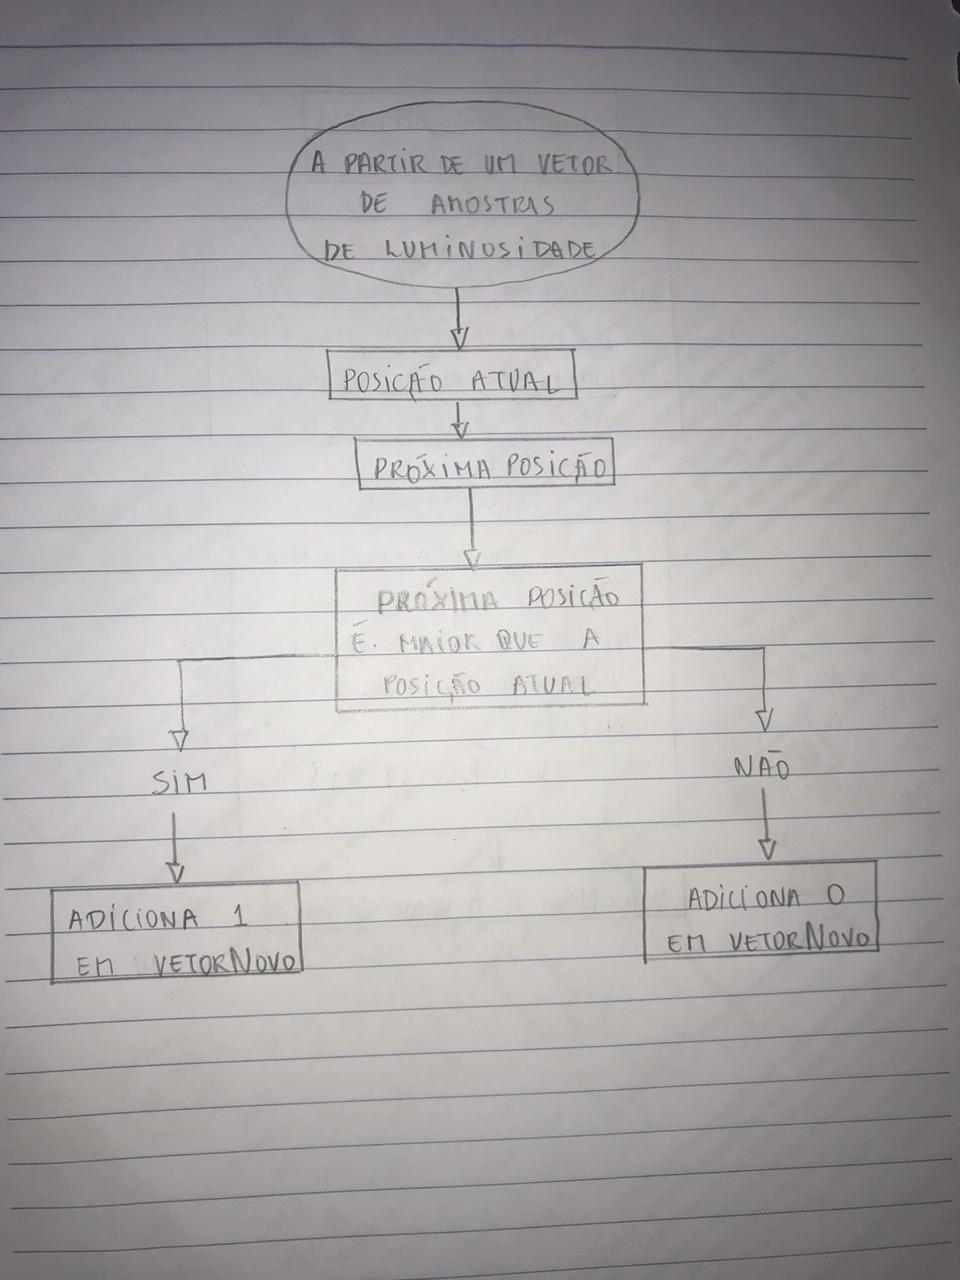 A PARTIR DE UM VETOR
DE AMOSTRAS
DE LUMINOSIDADE
POSIÇÃO ATUAL
PRÓXIMA POSIÇÃO
PRÓXIMA POSIÇÃO
É MAIOR QUE A
POSIÇÃO ATUAL
SIM
NÃO
ADICIONA 1
EM VETORNOVO
ADICIONA 0
EM VETORNOVO